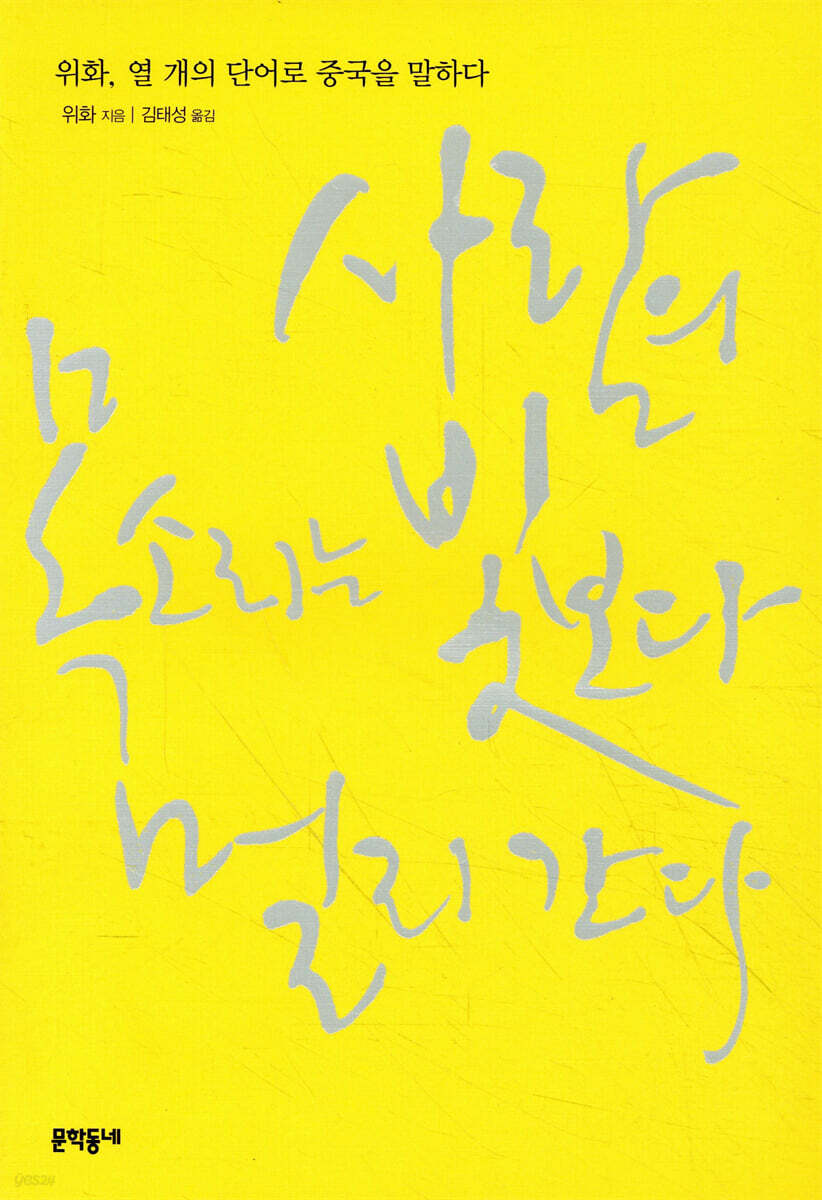 위화, 열 개의 단어로 중국을 말하다
위화 지음 | 김태성 옮김
사람의
목소리는 빛보다
멀리 간다
문학동네
yes24